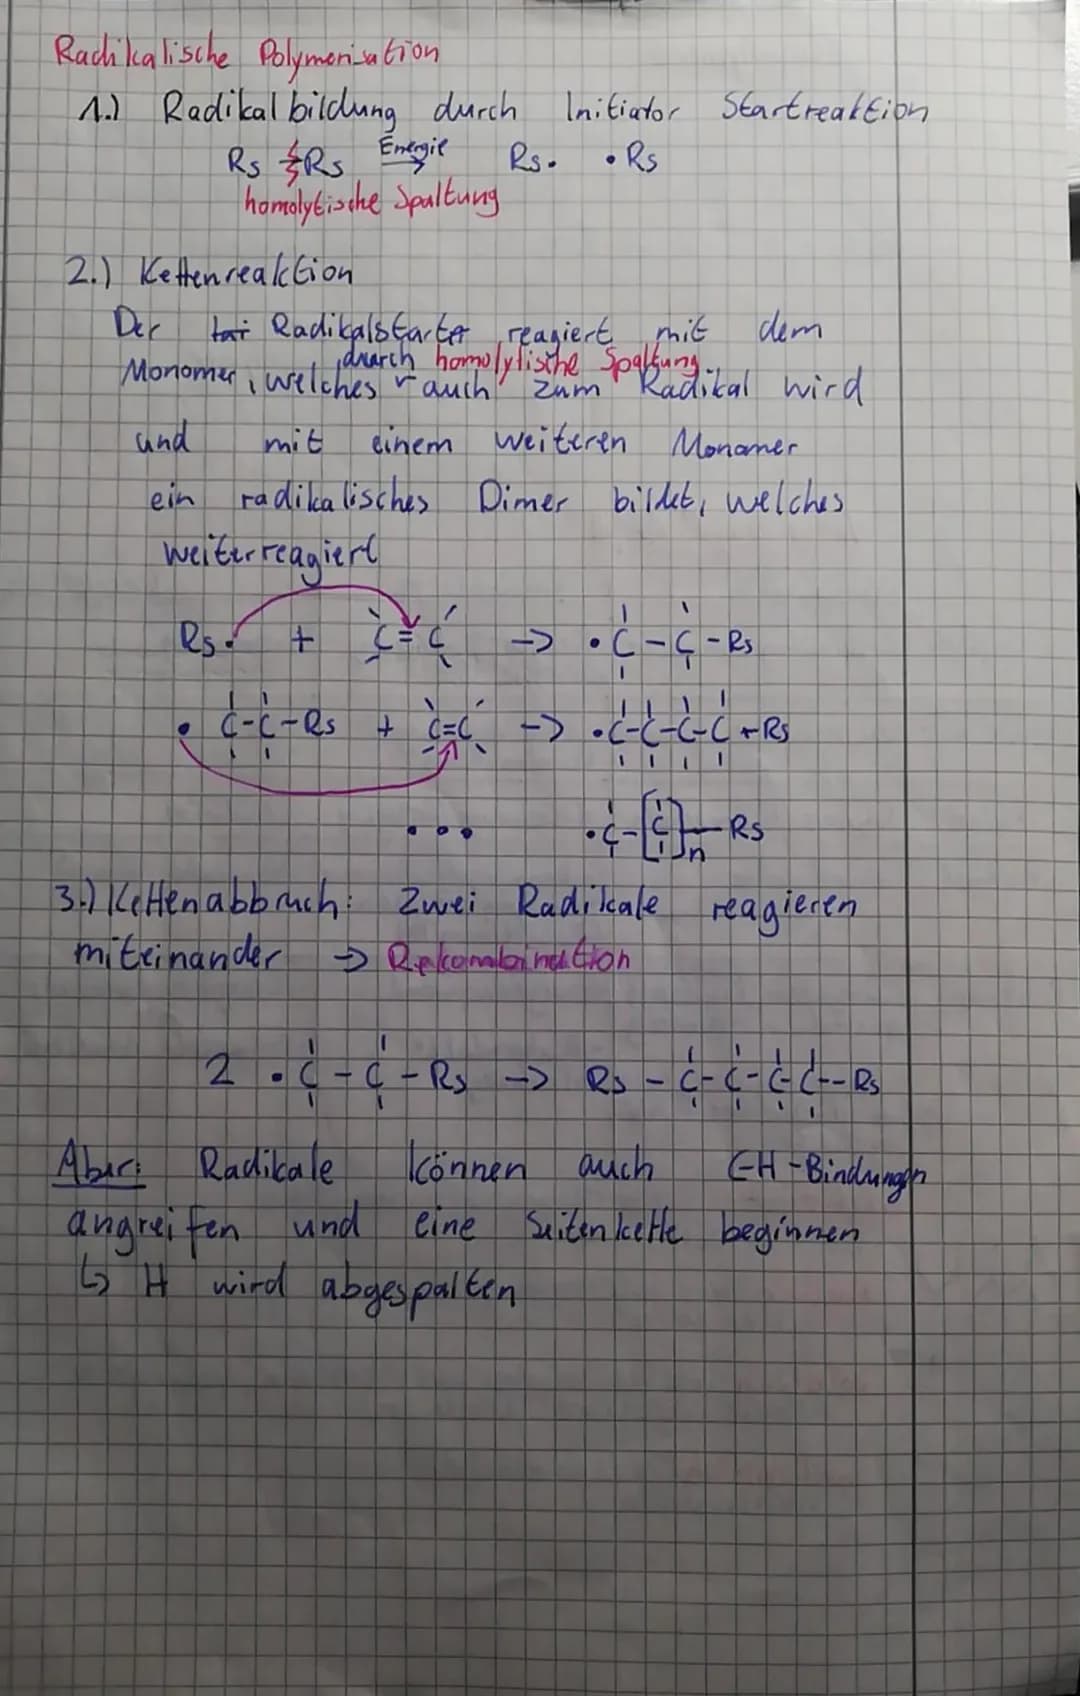 Radikalische Polymerisation
1.) Radikalbildung durch Initiator Startreaktion
Rs Rs Energie → Rs• •Rs
homolytische Spaltung
2.) Kettenreaktion
Der Radikalstarter reagiert mit dem
durch homolytische Spaltung
Monomer, welches auch zum Radikal wird
und mit einem weiteren Monomer
ein radikalisches Dimer bildet, welches
weiterreagiert
Rs• + C=C -> •C-C-Rs
•C-C-Rs + C=C -> •C-C-C-C-Rs
••• •C-[C]n-Rs
3.) Kettenabbruch: Zwei Radikale reagieren
miteinander -> Rekombination
2 •C-C-Rs -> Rs-C-C-C-C--Rs
Aber: Radikale können auch C-H-Bindungen
angreifen und eine Seitenkette beginnen
↳ H wird abgespalten